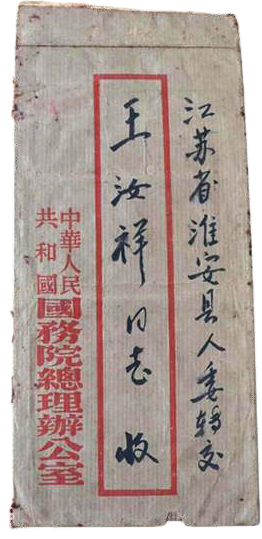 江苏省淮安县人委转交
王汝祥同志收
中華人民
共和國
國務院總理辦公室